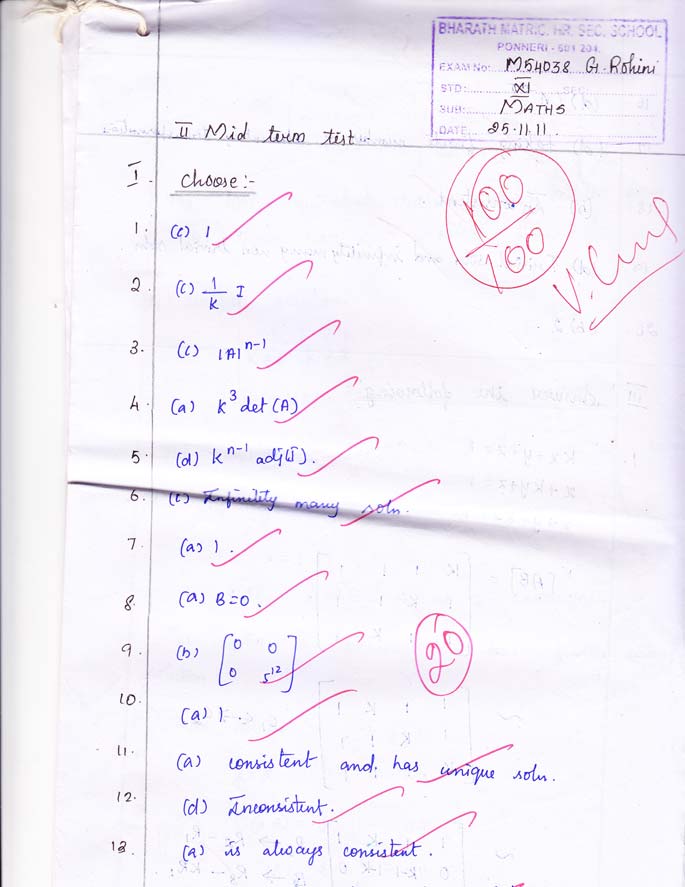 BHARATH MATRIC. HR. SEC. SCHOOL
PONNERI - 601 204.
EXAM No: M54038 G. Rohini
STD: XI SEC:
SUB: MATHS
DATE 25.11.11.
II Mid term test
I. Choose:-
1. (c) 1
2. (c) 1/k I
3. (c) |A|^n-1
4. (a) k^3 det (A)
5. (d) k^n-1 adj(I).
6. (c) Infinility many soln.
7. (a) 1.
8. (a) B=0.
9. (b) [0 0
0 5^12]
10. (a) 1.
11. (a) consistent and has unique soln.
12. (d) Inconsistent.
13. (a) is always consistent.
100/100
20